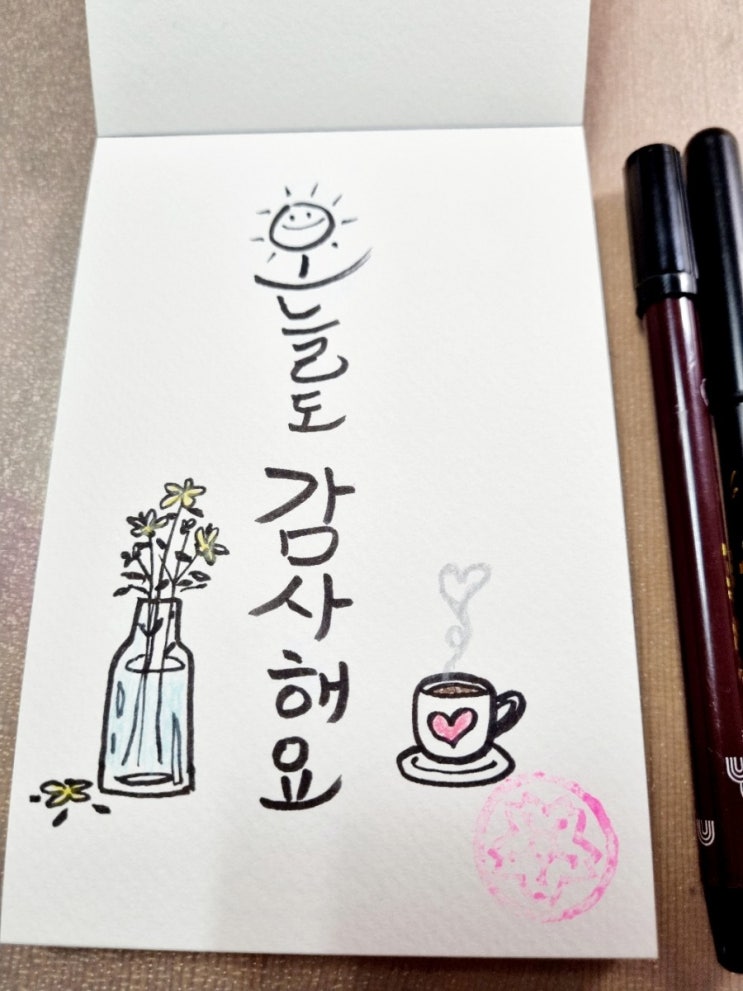 오늘도
감사해요